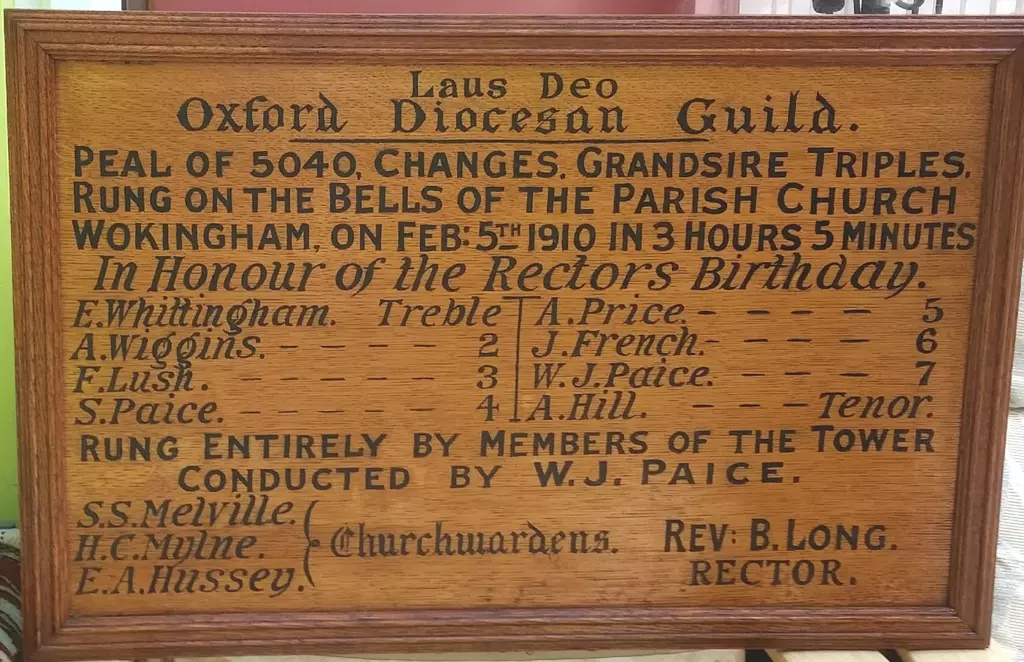 Laus Deo
Oxford Diocesan Guild.
PEAL OF 5040, CHANGES. GRANDSIRE TRIPLES.
RUNG ON THE BELLS OF THE PARISH CHURCH
WOKINGHAM, ON FEB: 5TH 1910 IN 3 HOURS 5 MINUTES
In Honour of the Rectors Birthday.
E. Whittingham. Treble A. Price. – – – – 5
A. Wiggins. – – – – – 2 J. French. – – – – 6
F. Lush. – – – – – 3 W. J. Paice. – – – – 7
S. Paice. – – – – – 4 A. Hill. – – – Tenor.
RUNG ENTIRELY BY MEMBERS OF THE TOWER
CONDUCTED BY W. J. PAICE.
S. S. Melville.
H. C. Mylne. Churchwardens. REV: B. LONG.
E. A. Hussey. RECTOR.